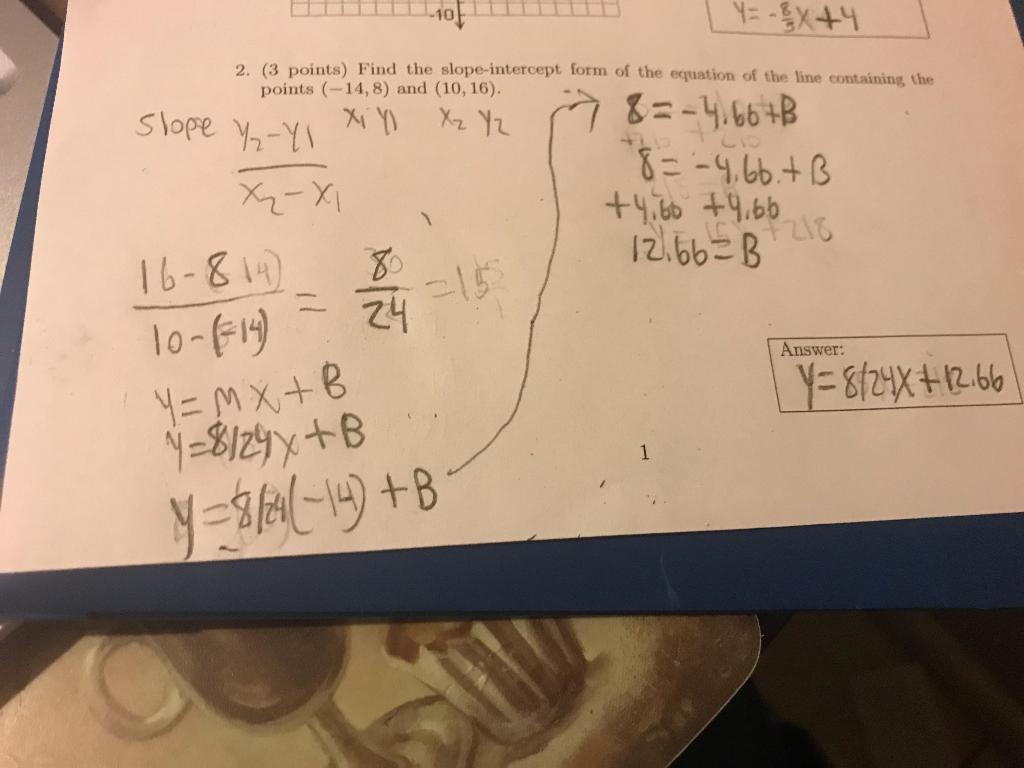 -10
y = -8/3x+4
2. (3 points) Find the slope-intercept form of the equation of the line containing the
points (−14, 8) and (10, 16).
Slope Y2-Y1 / X2-X1
X1 Y1 X2 Y2
16-8 / 10-(-14) = 8 / 24
Y = MX + B
Y=8/24x+B
Y=8/24(-14) + B
8 = -4.66+B
8 = -4.66.+B
+4.66 +4.66
12.66=B
Answer:
Y=8/24x+12.66
1